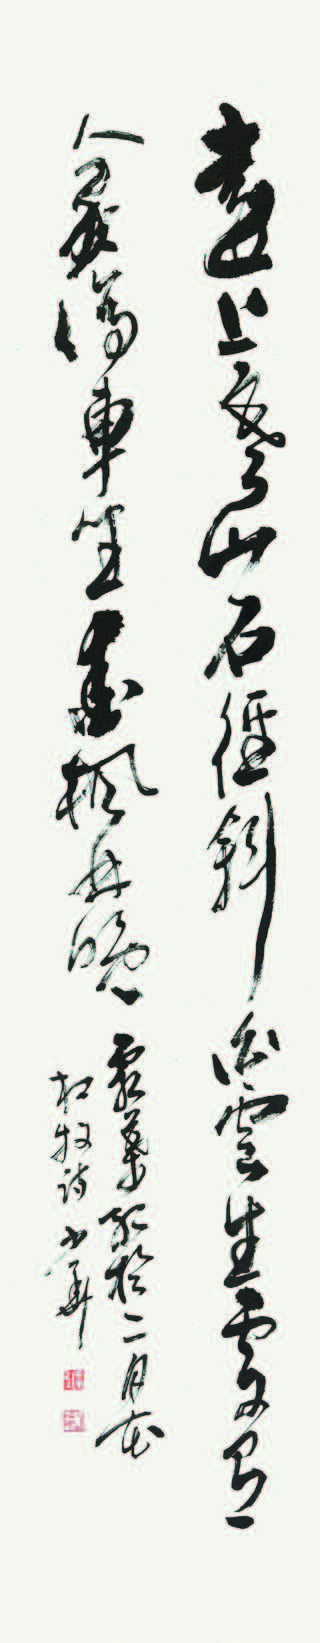 遠上寒山石徑斜白雲生處有
人家停車坐愛楓林晚
霜葉紅於二月花
杜牧詩